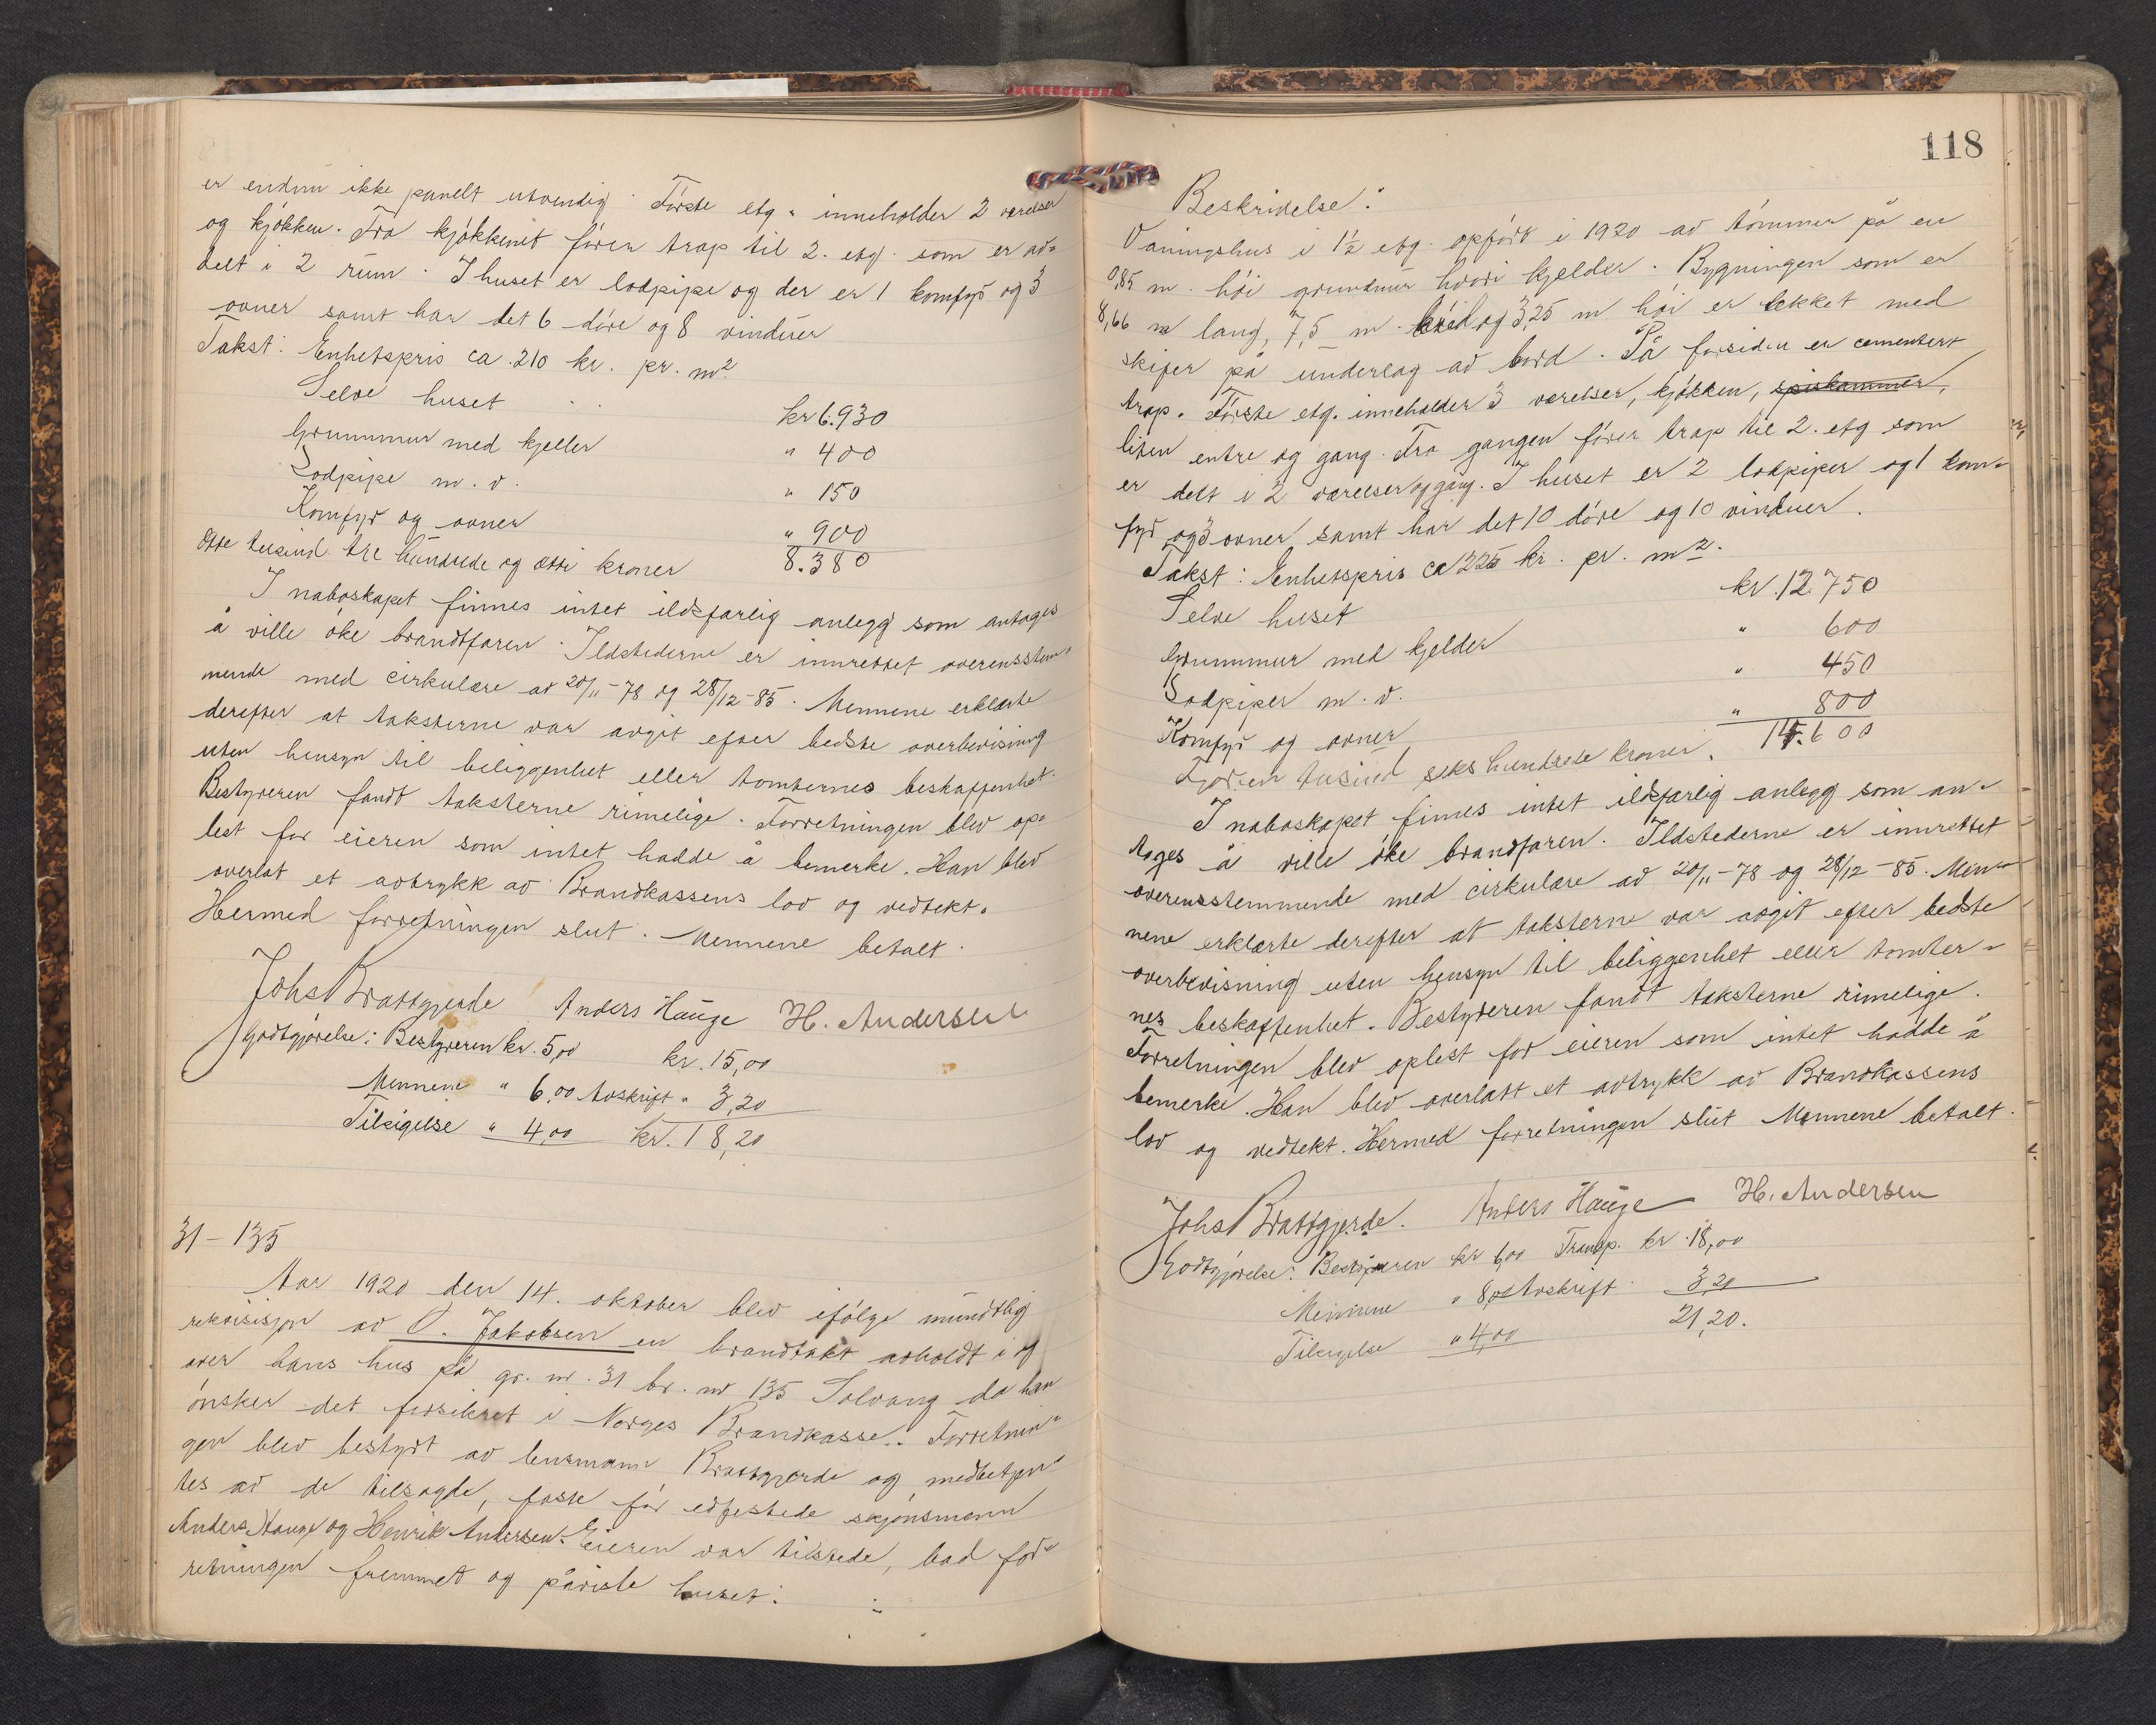 er endnu ikke panelt utvendig. Første etg. inneholder 2 værelser
og kjøkken. Fra kjøkkenet fører trap til 2. etg. som er av-
delt i 2 rum. I huset er lodpipe og der er 1 komfyr og 3
ovner samt har det 6 døre og 8 vinduer
Takst: Enhetspris ca. 210 kr. pr. m²
Selve huset kr 6.930
Grunnmur med kjeller " 400
Lodpipe m.v. " 150
Komfyr og ovner " 900
Otte tusind tre hundrede og otti kroner 8.380
I naboskapet finnes intet ildsfarlig anlegg som antages
å ville øke brandfaren. Ildstederne er innrettet overensstem-
mende med cirkulære av 20/11-78 og 28/12-85. Mennene erklærte
derefter at taksterne var avgit efter bedste overbevisning
uten hensyn til beliggenhet eller tomternes beskaffenhet.
Bestyreren fandt taksterne rimelige. Forretningen blev op-
lest for eieren som intet hadde å bemerke. Han blev
overlat et avtrykk av Brandkassens lov og vedtekt.
Hermed forretningen slut. Mennene betalt.
Johs Brattgjerde Anders Hauge H. Andersen
Godtgjørelse: Bestyreren kr. 5,00 kr. 15,00
Mennene " 6,00 Avskrift " 3,20
Tilsigelse " 4,00 kr. 18,20
31-135
Aar 1920 den 14. oktober blev ifølge mundtlig
rekvisisjon av O. Jakobsen en brandtakt avholdt i og
over hans hus på gr. nr. 31 br. nr 135 Solvang da han
ønsker det forsikret i Norges Brandkasse. Forretnin-
gen blev bestyrt av lensmann Brattgjerde og medbetjen-
tes av de tilsagde, faste før edfestede skjønsmenn
Anders Hauge og Henrik Andersen. Eieren var tilstede, bad for-
retningen fremmet og påviste huset:
118
Beskrivelse:
Vaningshus i 1½ etg. opført i 1920 av tømmer på en
0,85 m. høi grundmur hvori kjelder. Bygningen som er
8,66 m lang, 7,5 m. bred og 3,25 m høi er tekket med
skifer på underlag av bord. På forsiden er cementert
trap. Første etg. inneholder 3 værelser, kjøkken, spiskammer,
liten entre og gang. Fra gangen fører trap til 2. etg som
er delt i 2 værelser og gang. I huset er 2 lodpiper og 1 kom-
fyr og 3 ovner samt har det 10 døre og 10 vinduer.
Takst: Enhetspris ca 225 kr. pr. m².
Selve huset kr. 12.750
Grunnmur med kjelder " 600
Lodpiper m.v. " 450
Komfyr og ovner " 800
Fjorten tusind seks hundrede kroner. 14.600
I naboskapet finnes intet ildsfarlig anlegg som an-
tages å ville øke brandfaren. Ildstederne er innrettet
overensstemmende med cirkulære av 20/11-78 og 28/12-85. Men-
nene erklærte derefter at taksterne var avgit efter bedste
overbevisning uten hensyn til beliggenhet eller tomter-
nes beskaffenhet. Bestyreren fandt taksterne rimelige.
Forretningen blev oplest for eieren som intet hadde å
bemerke. Han blev overlatt et avtrykk av Brandkassens
lov og vedtekt. Hermed forretningen slut Mennene betalt.
Johs Brattgjerde. Anders Hauge H. Andersen
Godtgjørelse: Bestyreren kr 6,00 Transp. kr. 18,00
Mennene " 8,00 Avskrift 3,20
Tilsigelse " 4,00 21,20.